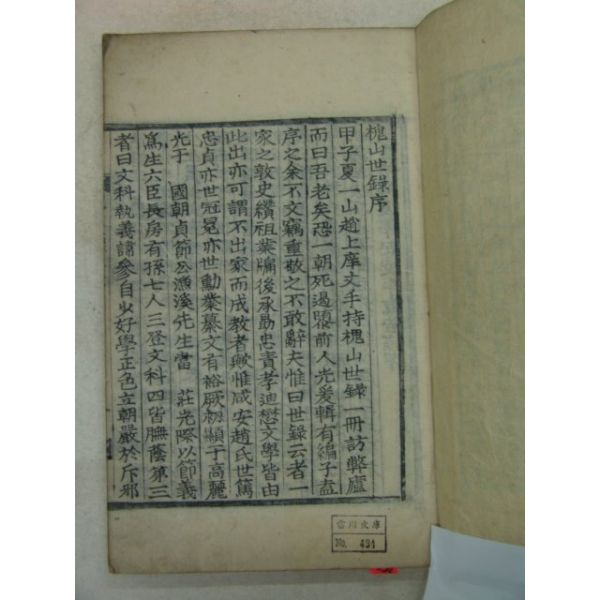 槐山世錄序
甲子夏一山趙上庠文手持槐山世錄一冊訪弊廬
而曰吾老矣恐一朝死過隱前人光爰輯有編子盍
序之余不文竊重敬之不敢辭夫惟曰世錄云者一
家之敦史纘祖業牖後承勗忠責孝迪懋文學皆由
此出亦可謂不出家而成教者歟惟咸安趙氏世篤
忠貞亦世冠冕亦世勳業纂文有裕厥初顯于高麗
光于 國朝貞節公漁溪先生當 莊光際以節義
爲生六臣長房有孫七人三登文科四皆蔭第三
者曰文科執義諱參自少好學正色立朝嚴於斥邪
雷川文庫
No. 494